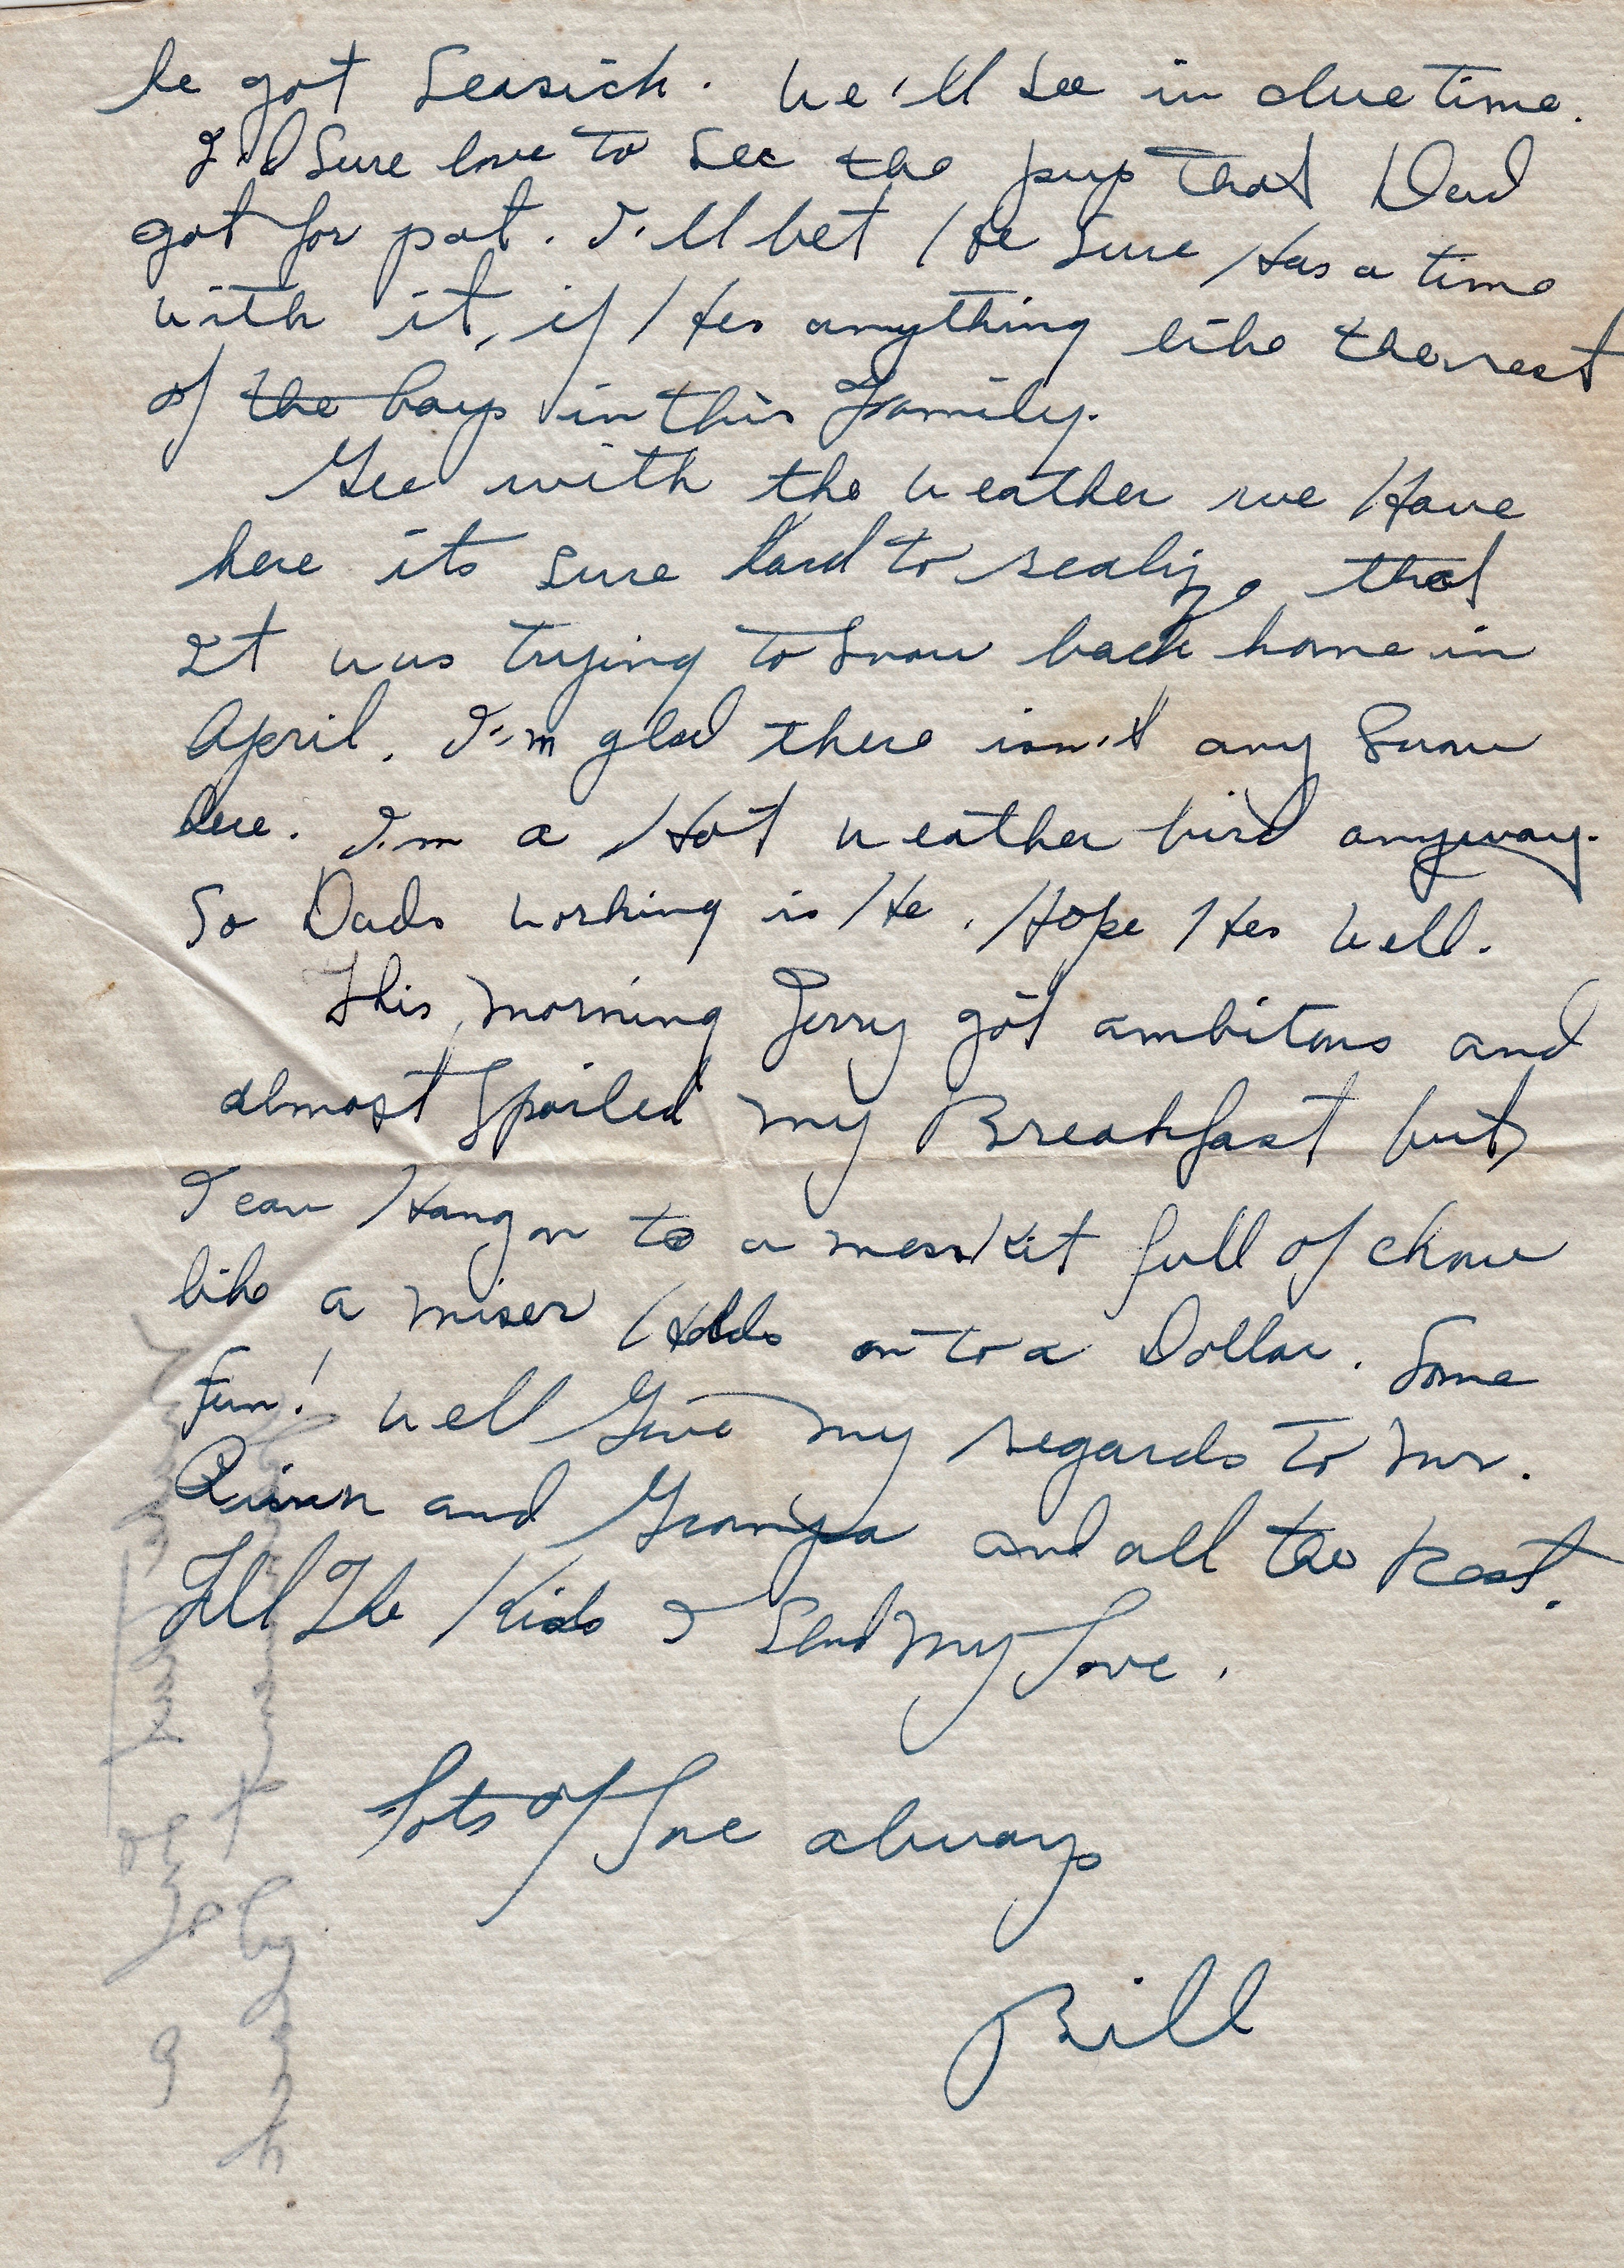 he got Seasick. We'll see in due time.
I'd Sure love to See the pup that Dad
got for pat. I'll bet He Sure Has a time
with it, if Hes anything like the rest
of the boys in this Family.
Gee with the weather we Have
here its sure hard to realize that
It was trying to Snow back home in
April. I'm glad there isn't any Snow
here. I'm a Hot weather bird anyway.
So Dads working is He. Hope Hes well.
This morning Jerry got ambitous and
almost Spoiled my Breakfast but
I can Hang on to a mess Kit full of chow
like a miser Holds on to a Dollar. Some
Fun! Well Give my regards to Mr.
and Grampa and all the Rest.
Tell The Kids I Send My Love.
Lots of Love always
Bill